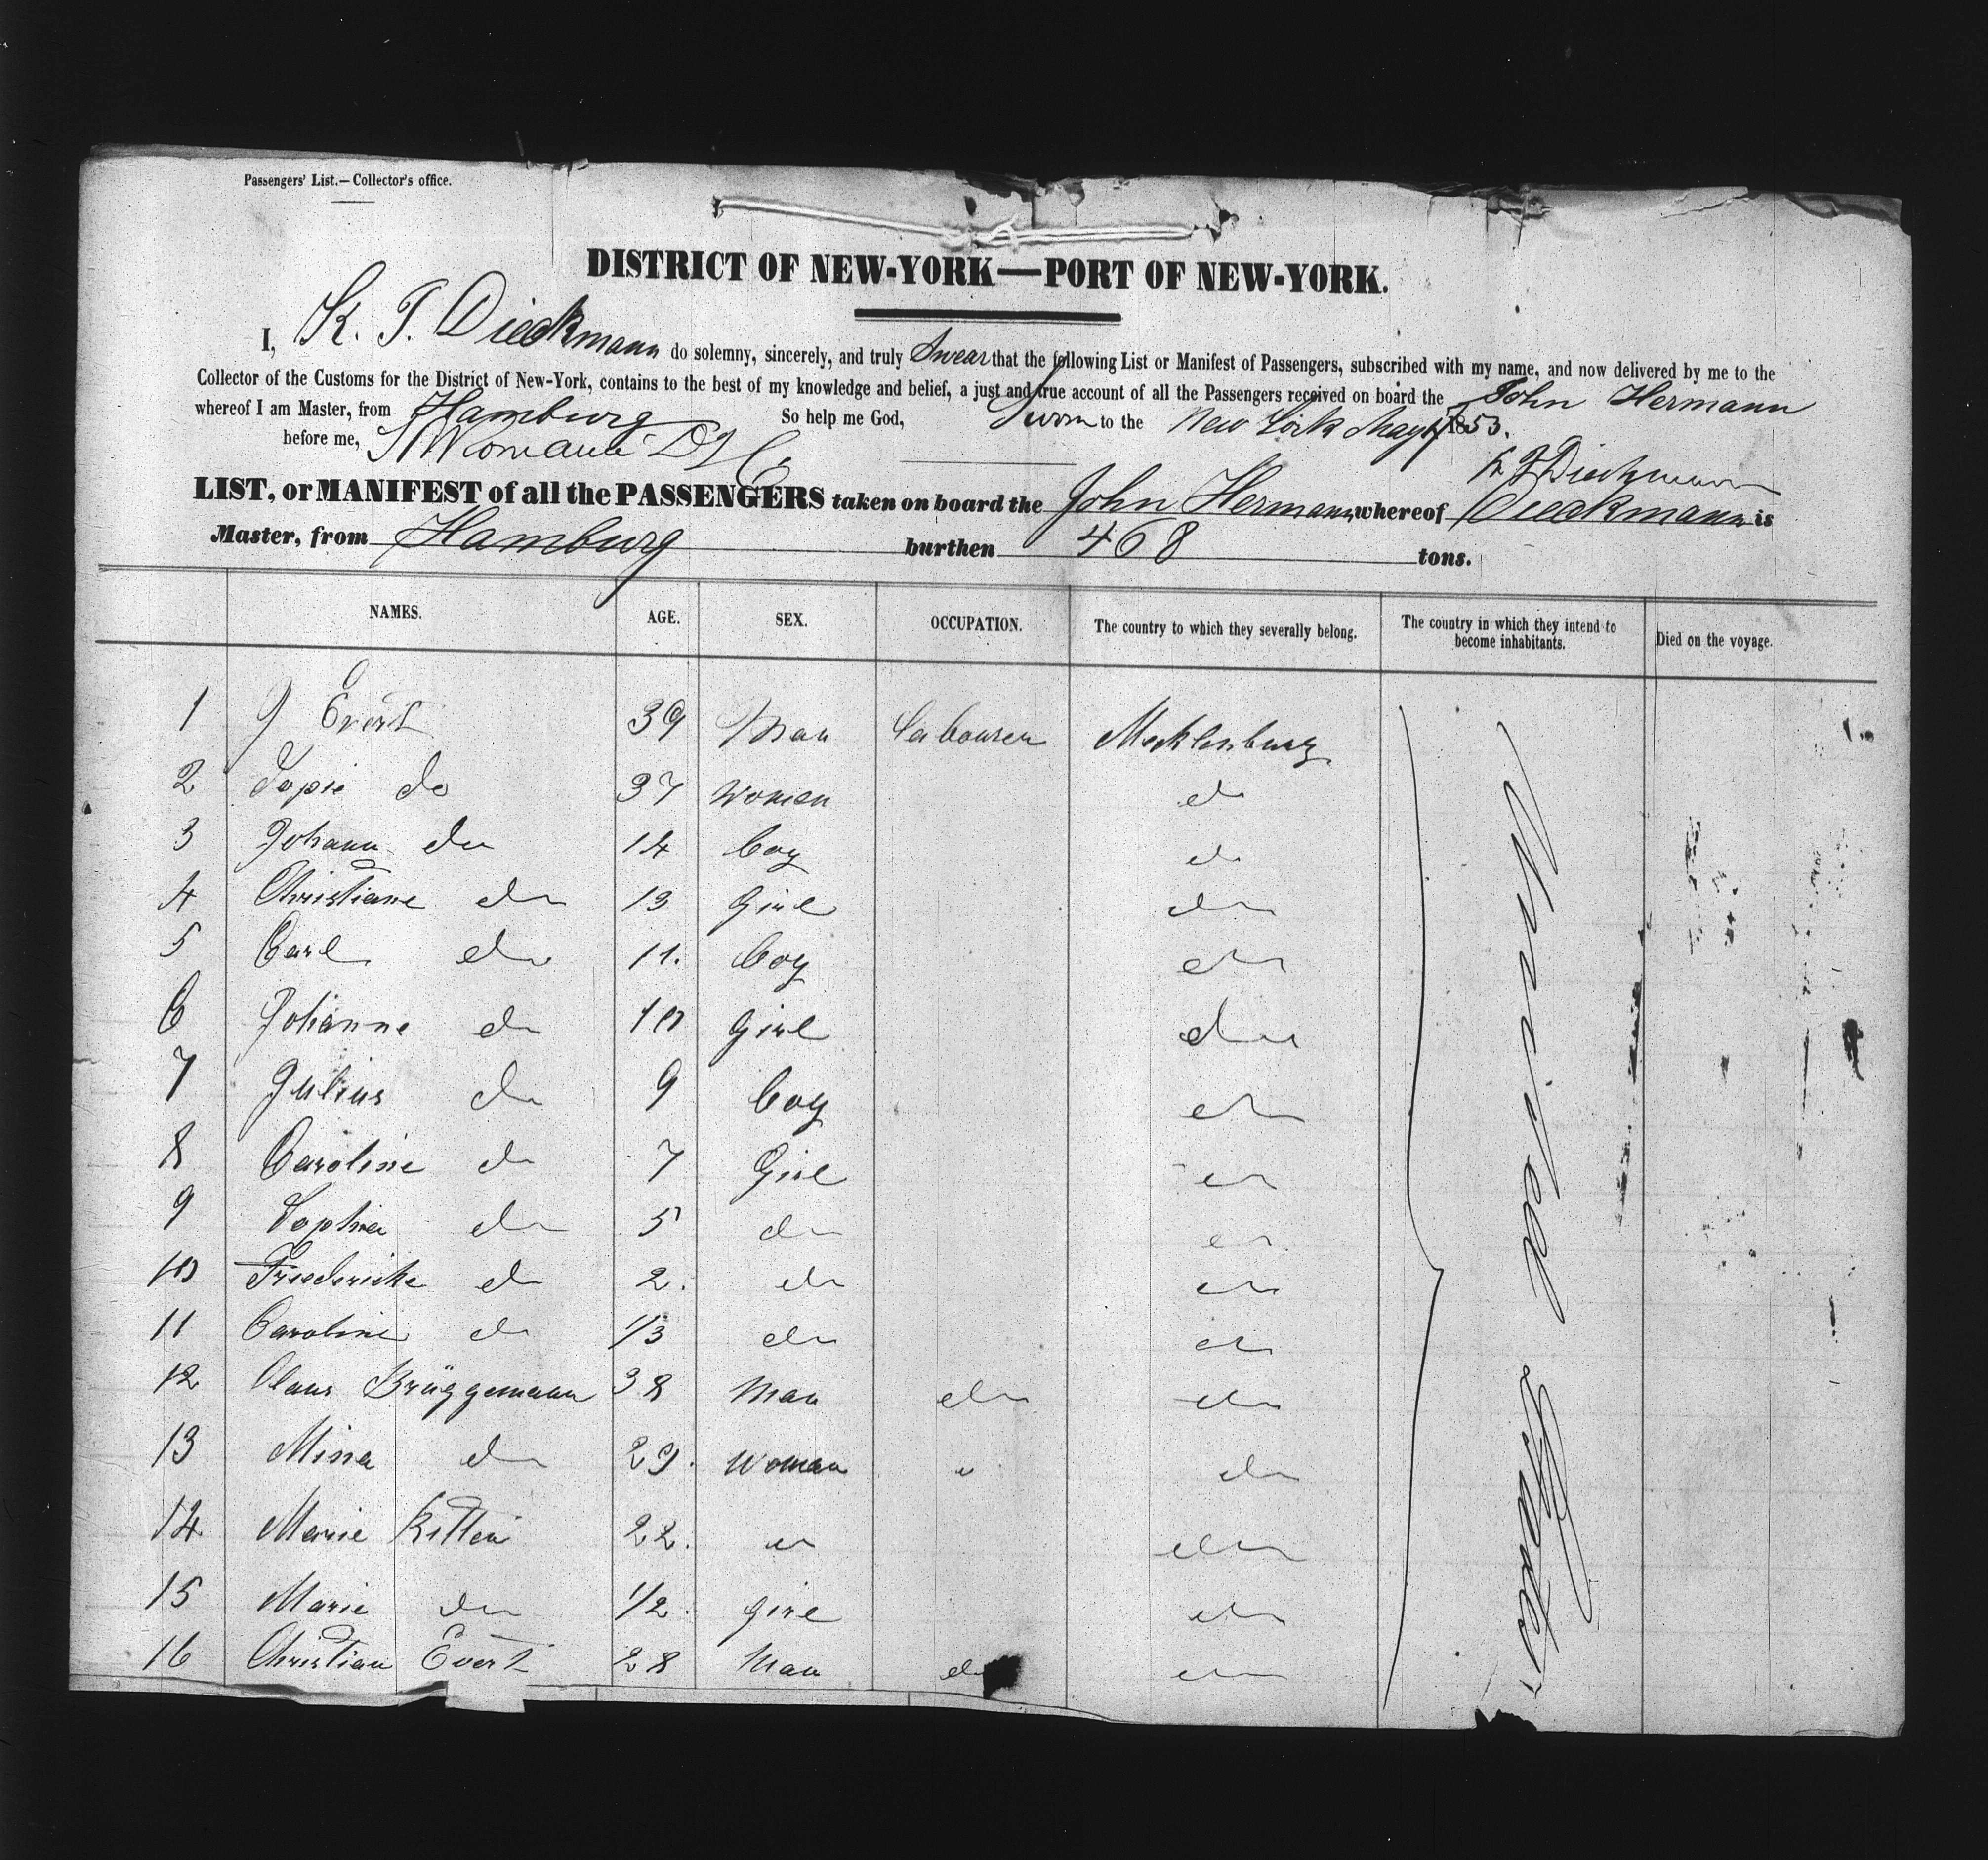 Passengers' List.—Collector's office.
DISTRICT OF NEW-YORK—PORT OF NEW-YORK.
I, K. J. Dieckmann do solemny, sincerely, and truly Swear that the following List or Manifest of Passengers, subscribed with my name, and now delivered by me to the
Collector of the Customs for the District of New-York, contains to the best of my knowledge and belief, a just and true account of all the Passengers received on board the John Hermann
whereof I am Master, from Hamburg So help me God, Sworn to the New York May 1853.
before me,
Dieckmann
LIST, or MANIFEST of all the PASSENGERS taken on board the John Hermann whereof Dieckmann is
Master, from Hamburg burthen 468 tons.
NAMES. AGE. SEX. OCCUPATION. The country to which they severally belong. The country in which they intend to become inhabitants. Died on the voyage.
1 J Evert 39 Man Labourer Mecklenburg
2 Sopie do 37 Woman do
3 Johann do 14 boy do
4 Christiane do 13 Girl do
5 Carl do 11. boy do
6 Johanne do 10 Girl do
7 Julius do 9 boy do
8 Caroline do 7 Girl do
9 Sophia do 5 do do
10 Friedericke do 2. do do
11 Caroline do 1/3 do do
12 Claus Brüggemann 38 Man do do
13 Mina do 29. Woman " do
14 Marie 22. do do
15 Marie do 1/2. girl do
16 Christian Evert 28 Man do do
United States